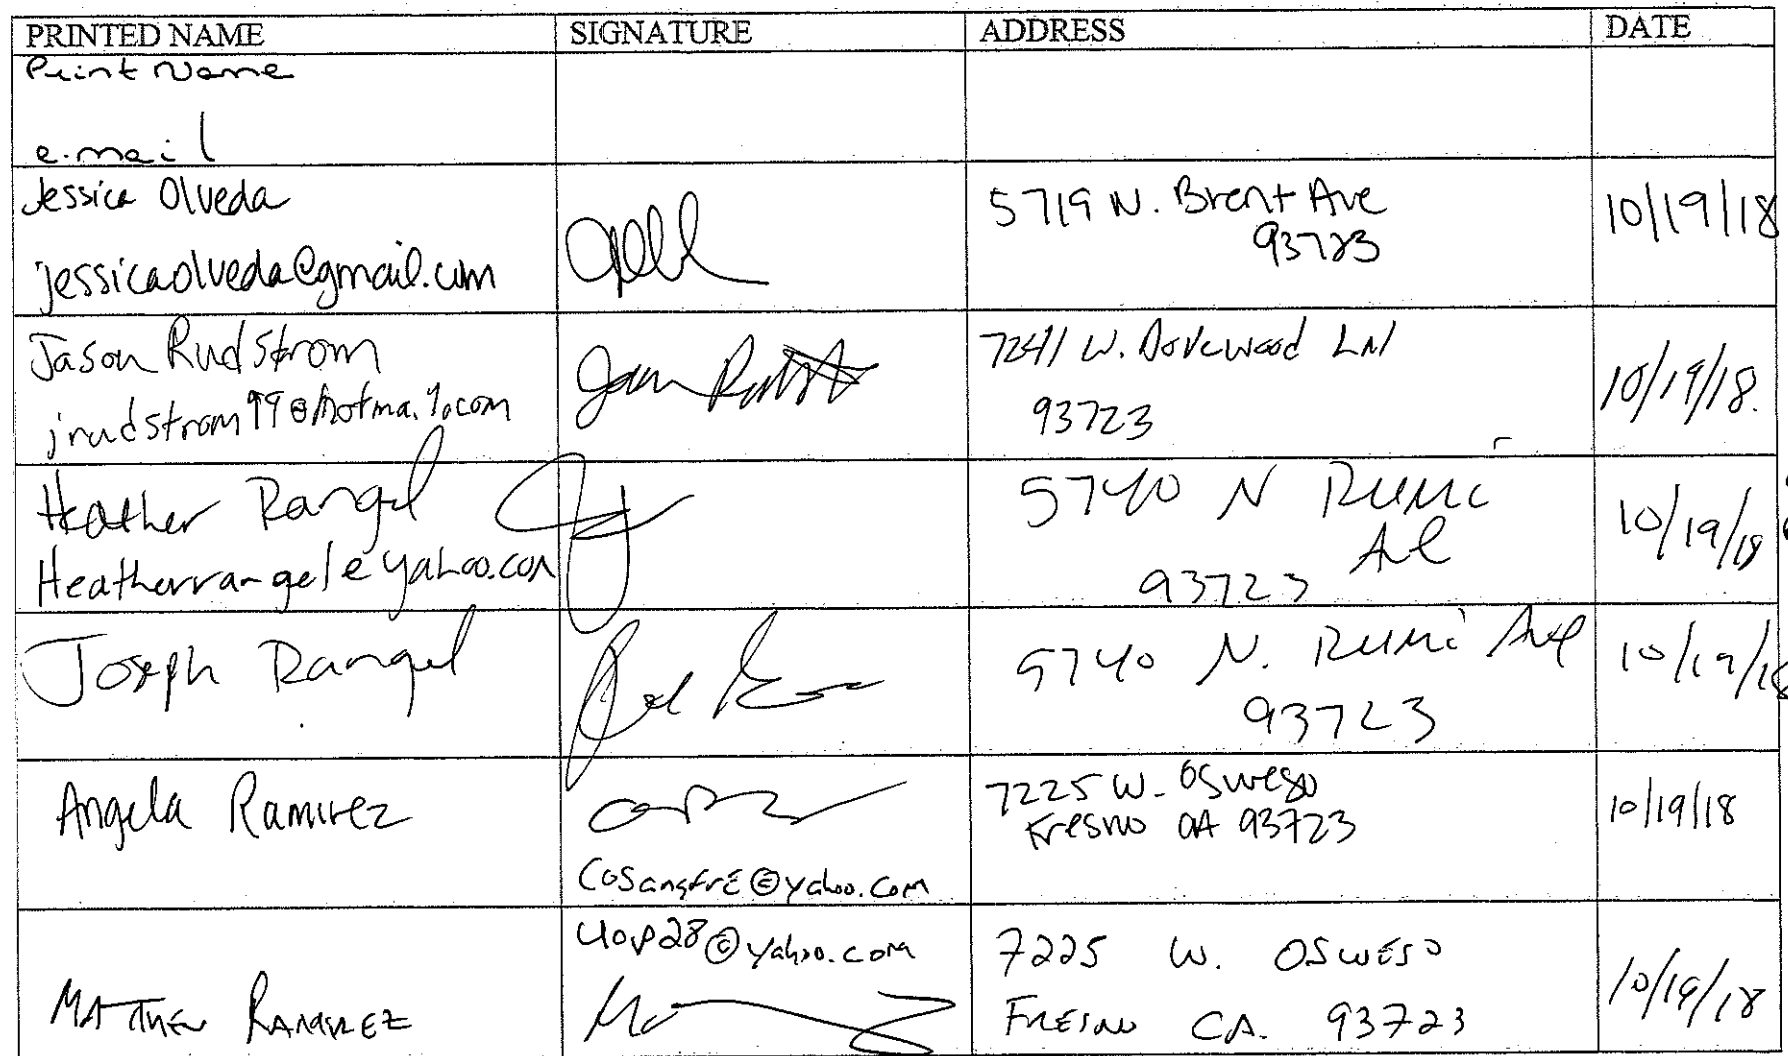 PRINTED NAME SIGNATURE ADDRESS DATE
Print Name
e-mail
Jessica Olveda
jessicaolveda@gmail.com
5719 N. Brent Ave
93723
10/19/18
Jason Rudstrom
jrudstrom99@hotmail.com
7241 W. Dovewood LN
93723
10/19/18.
Heather Rangel
Heatherrangel@yahoo.com
5740 N
93723
10/19/18
Joseph Rangel
5740 N.
93723
10/19/18
Angela Ramirez
cosangfre@yahoo.com
7225 W. Oswego
Fresno CA 93723
10/19/18
MATTHEW RAMIREZ
uop28@yahoo.com
7225 W. OSWEGO
FRESNO CA. 93723
10/19/18